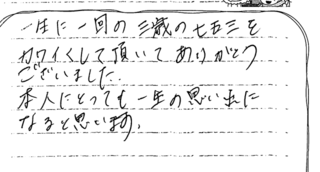 一生に一回の三歳の七五三を
カワイくして頂いてありがとう
ございました.
本人にとっても一生の思い出に
なると思います.